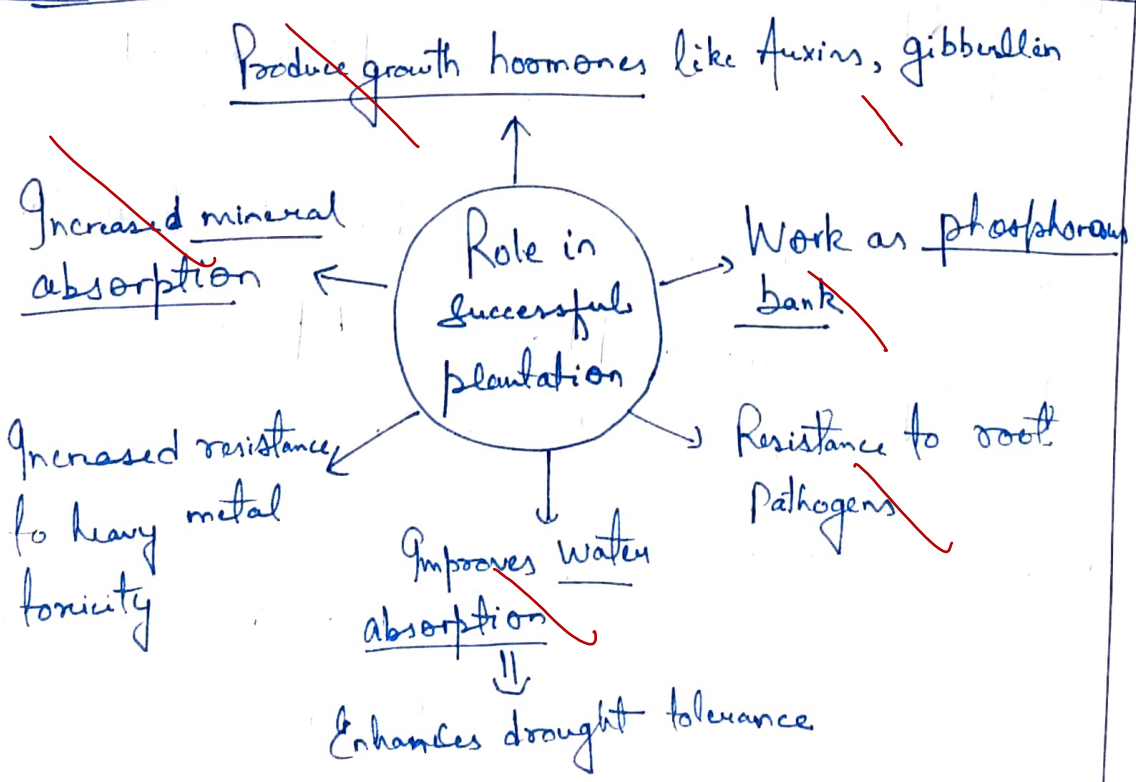 Produce growth hormones like Auxins, gibberllin
Increased mineral
absorption
Role in
successful
plantation
Work as phosphorous
bank
Increased resistance
to heavy metal
toxicity
Resistance to root
pathogens
Improves water
absorption
Enhances drought tolerance